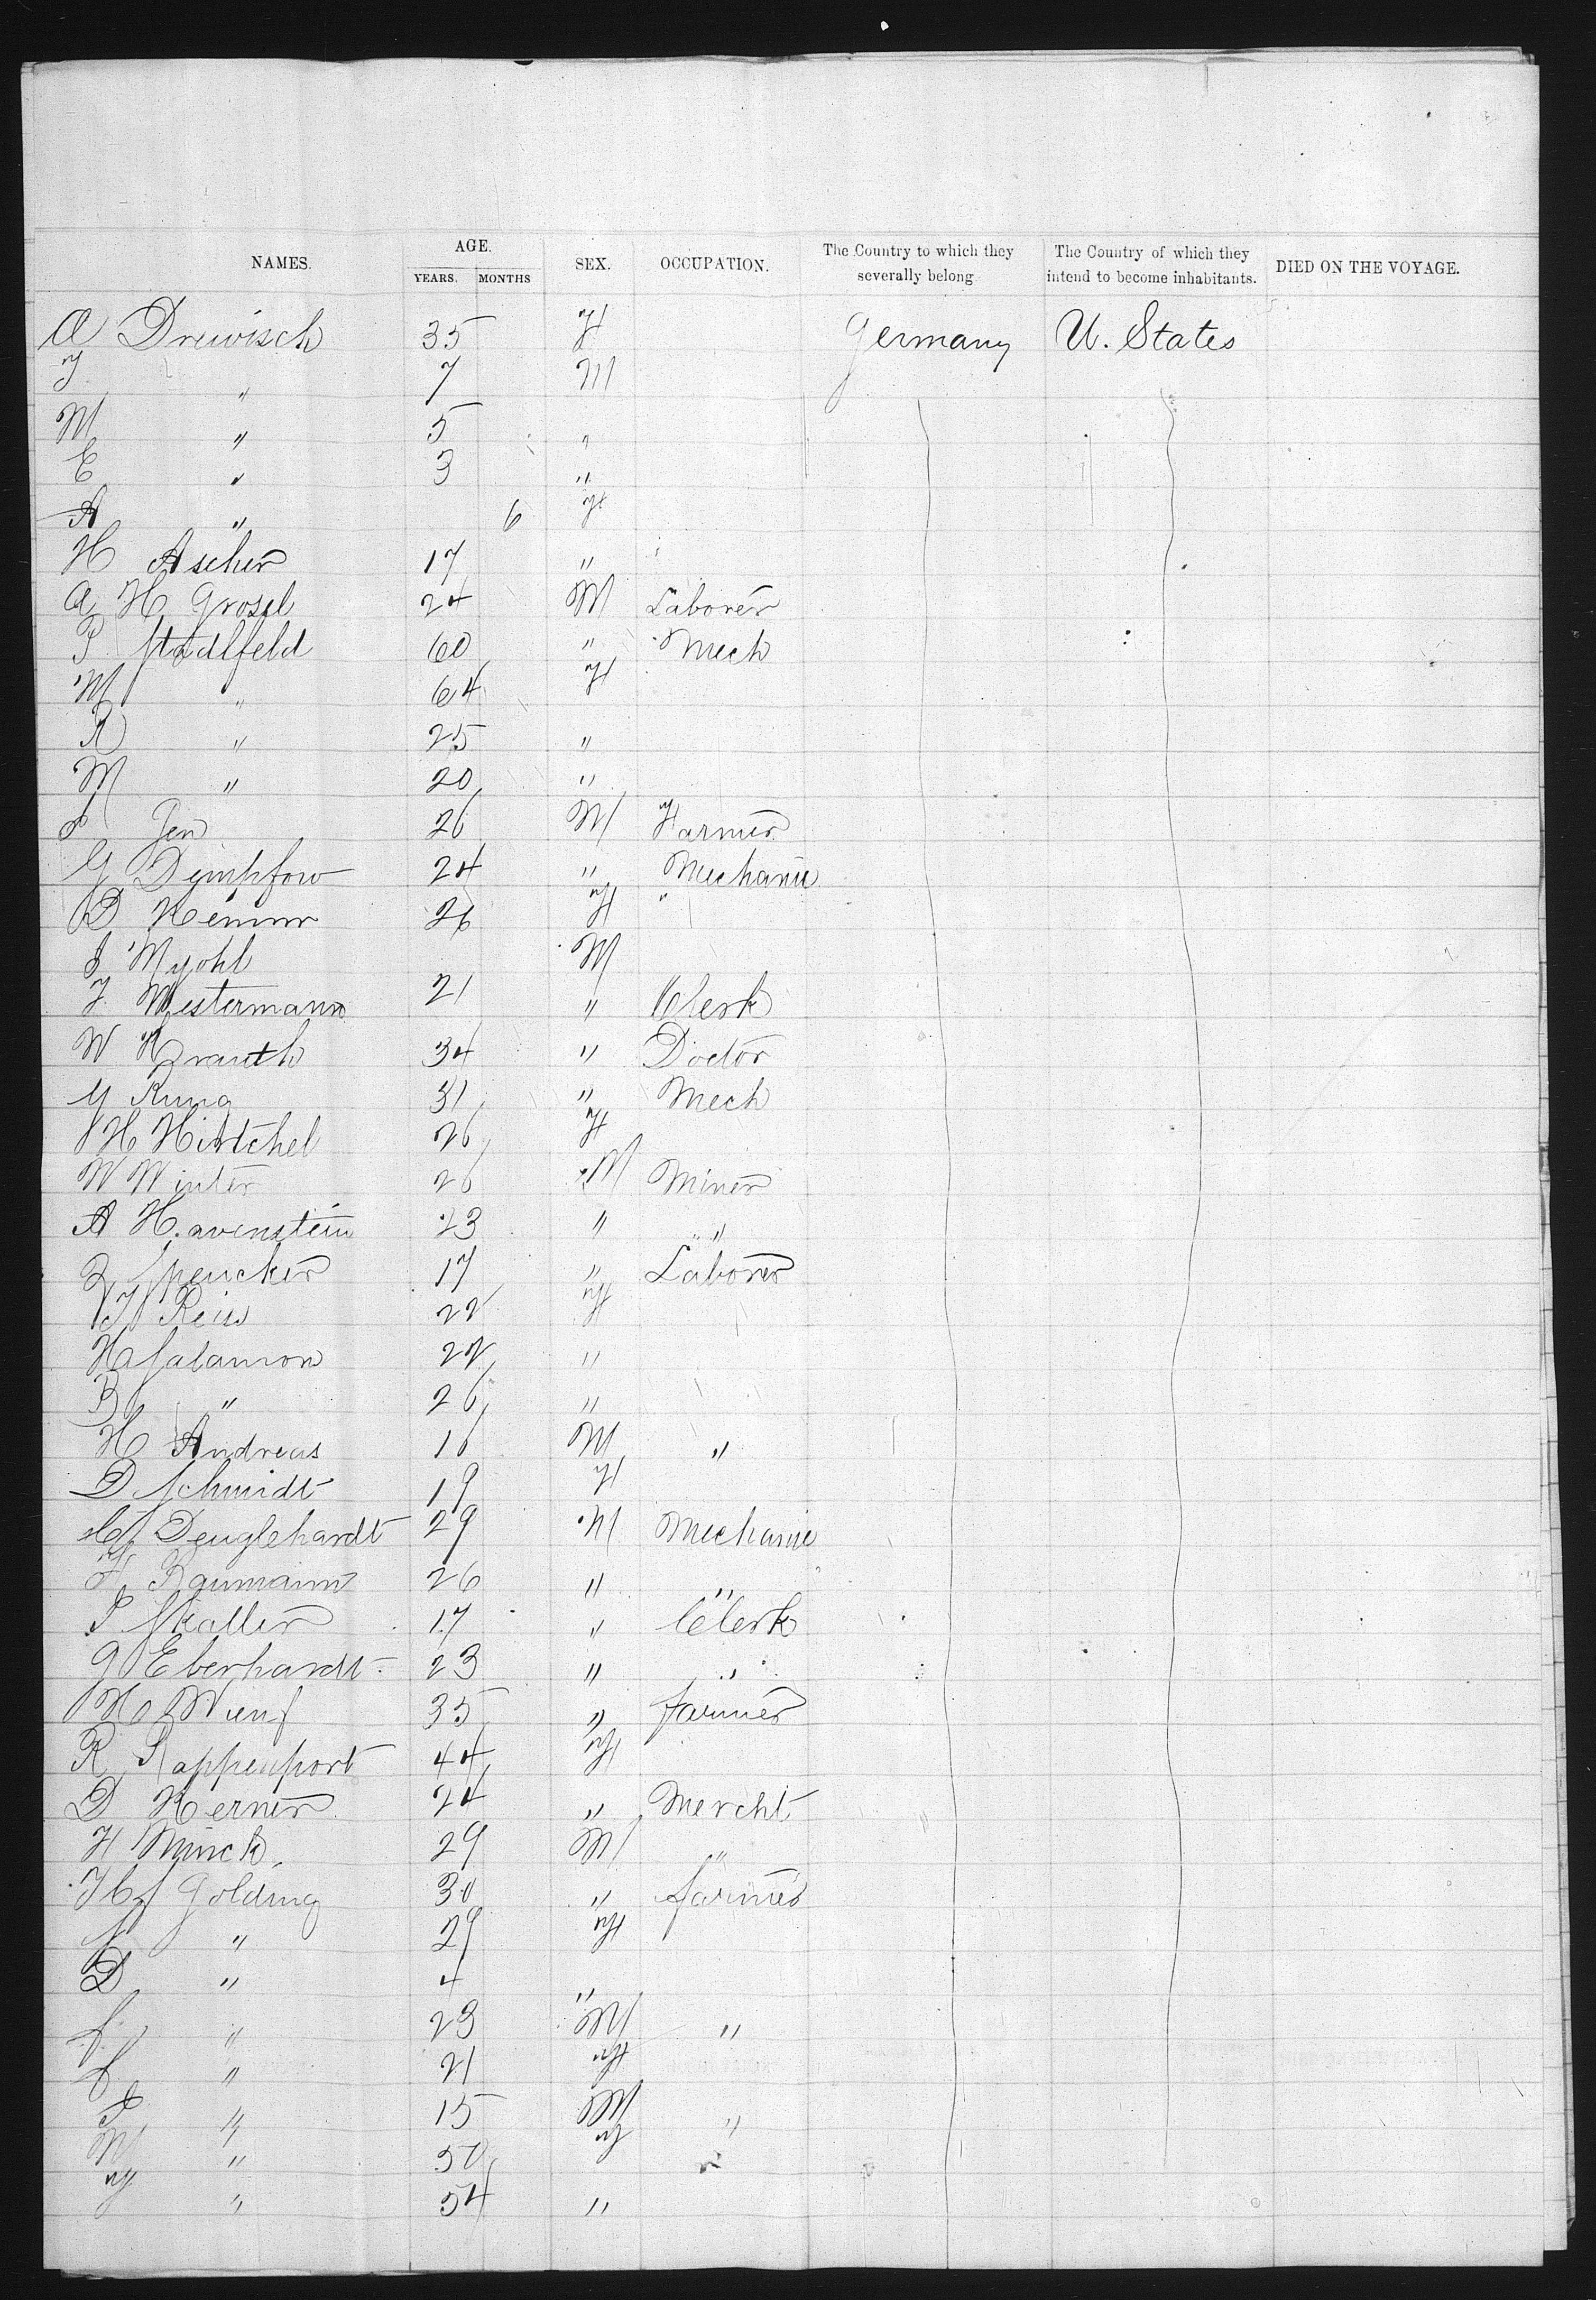 NAMES. AGE. YEARS. MONTHS SEX. OCCUPATION. The Country to which they severally belong The Country of which they intend to become inhabitants. DIED ON THE VOYAGE.
A Drewisch 35 F Germany U. States
J " 7 M
M " 5 "
E " 3 "
A " 6 F
H Ascher 17 "
A H Grosel 24 M Laborer
P Stadlfeld 60 " Mech
M " 64 F
R " 25 "
M " 20 "
Jen 26 M Farmer
G Dempfow 24 " Mechanic
D 26 F "
M
J Westermann 21 " Clerk
W Krauth 34 " Doctor
31 " Mech
H Hirtchel 26 F
W Winter 26 M Miner
A Havenstein 23 " "
Spencker 17 " Laborer
22 F
H Salamon 22 "
B " 26 "
H Andreas 16 M "
D Schmidt 19 F
Denglehardt 29 M Mechanic
F Baumann 26 " "
S Skaller 17 " Clerk
G Eberhardt 23 " "
35 " farmer
R Rappenport 44 F
D Kerner 24 " Mercht
H Minck 29 M "
H Golding 30 " farmer
S " 29 F
D " 4 "
" 23 M "
" 21 F
S " 15 M "
M " 50 F
F " 54 "